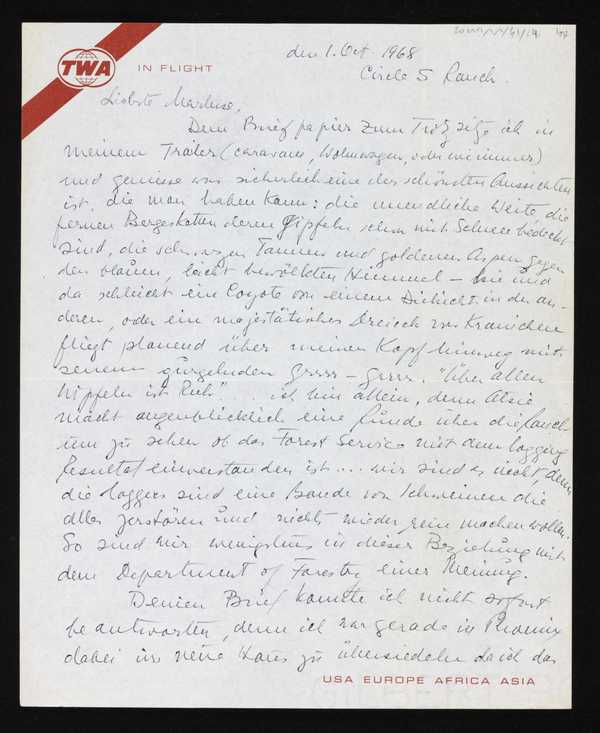 TWA
IN FLIGHT
den 1. Oct. 1968
Circle S Ranch
Liebste Marlise,
Dem Briefpapier zum Trotz sitze ich in
meinem Trailer (caravan, Wohnwagen, oder wie immer)
und geniesse was sicherlich eine der schönsten Aussichten
ist, die man haben kann: die unendliche Weite, die
fernen Bergesketten deren Gipfeln schon mit Schnee bedeckt
sind, die schwarzen Tannen und goldenen Aspen gegen
den blauen, leicht bewölkten Himmel — hie und
da schleicht eine Coyote von einem Dickicht in den an-
deren, oder ein majestätisches Dreieck von Kranichen
fliegt planend über meinen Kopf hinweg mit
seinem gurgelnden Grrrr - grrrr. "Über allen
Wipfeln ist Ruh" ... ich bin allein, denn
macht augenblicklich eine Runde über die Ranch
um zu sehen ob das Forest Service mit dem logging
Resultat einverstanden ist ... wir sind es nicht, denn
die loggers sind eine Bande von Schweinen die
alles zerstören und nichts wieder rein machen wollen.
So sind wir wenigstens in dieser Beziehung mit
dem Department of Forestry einer Meinung.
Deinen Brief konnte ich nicht sofort
beantworten, denn ich war gerade in Phoenix
dabei ins neue Haus zu übersiedeln da ich das
USA EUROPE AFRICA ASIA